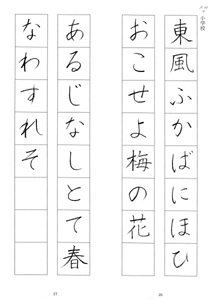 小学校
東風ふかばにほひ
おこせよ梅の花
あるじなしとて春
なわすれそ
26
27